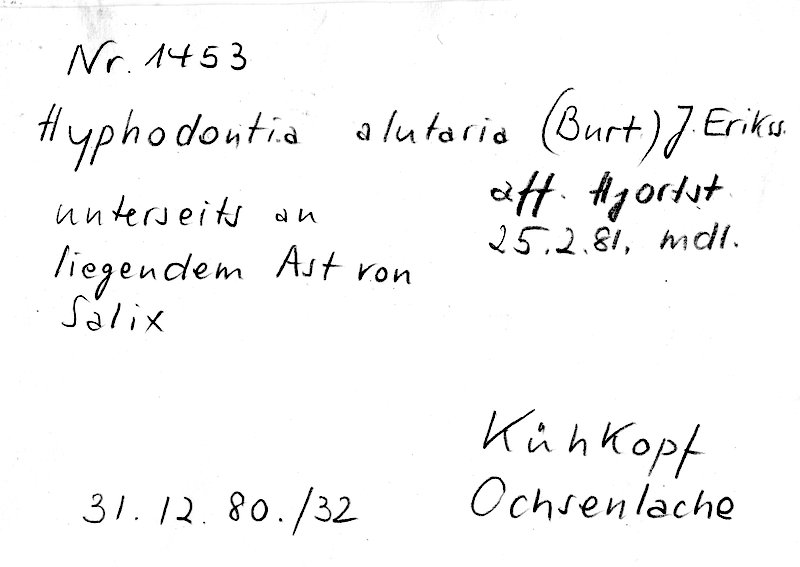 Nr. 1453
Hyphodontia alutaria (Burt.) J. Erikss.
aff. Hjortst.
25.2.81. mdl.
unterseits an
liegendem Ast von
Salix
Kühkopf
Ochsenlache
31.12.80./32